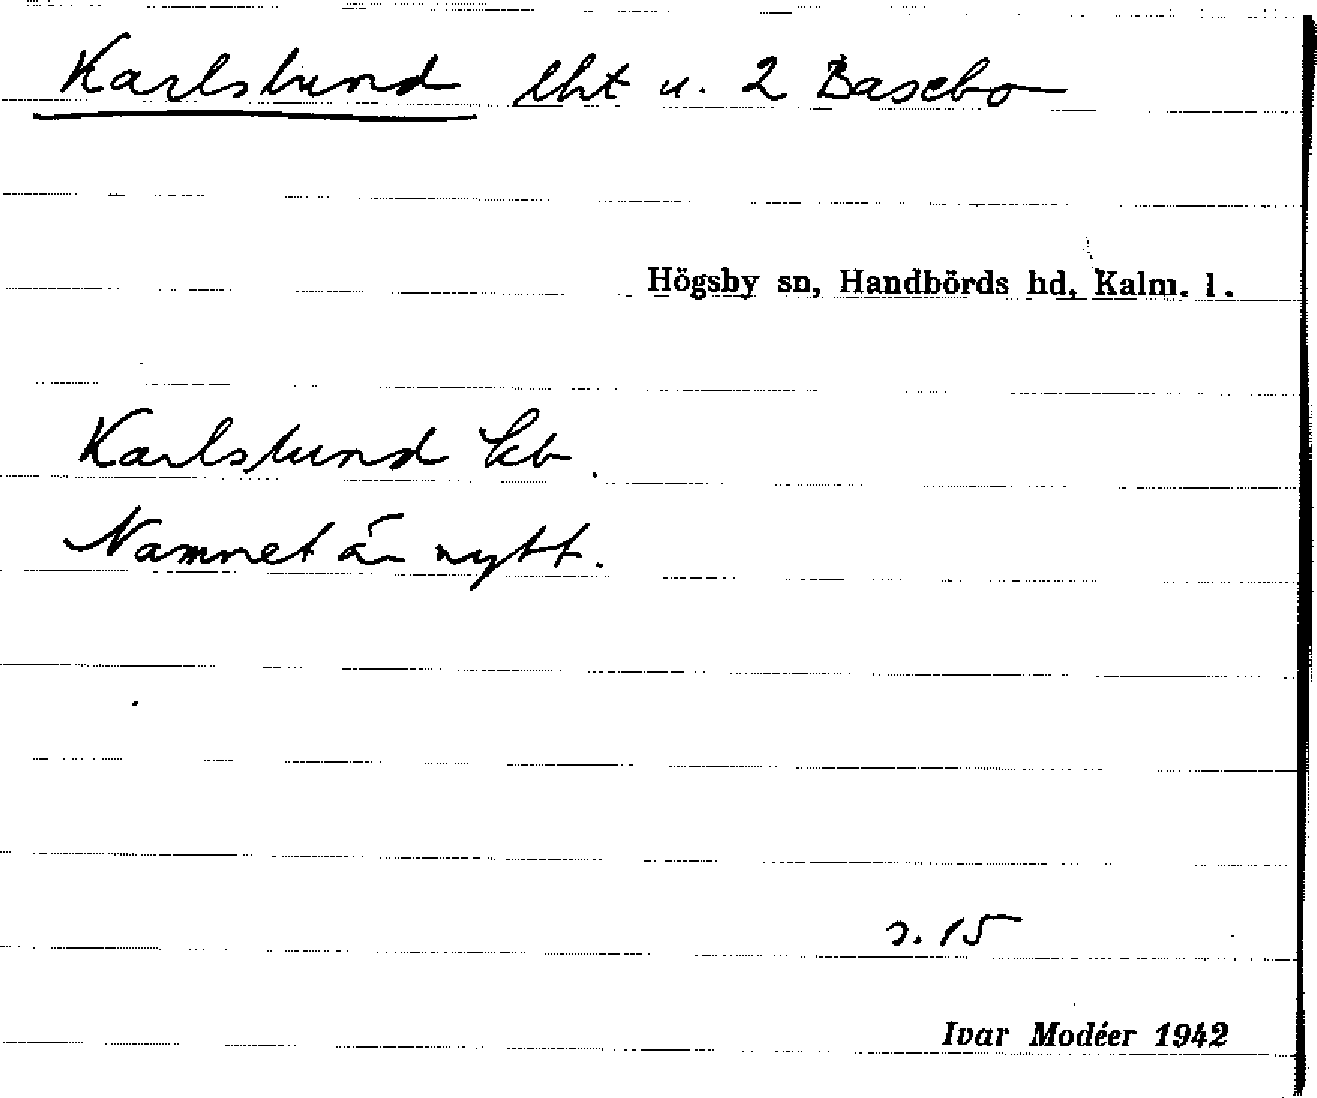 Karlslund lht u. 2 Basebo
Högsby sn, Handbörds hd, Kalm. l.
Karlslund kb.
Namnet är nytt.
s. 15
Ivar Modéer 1942